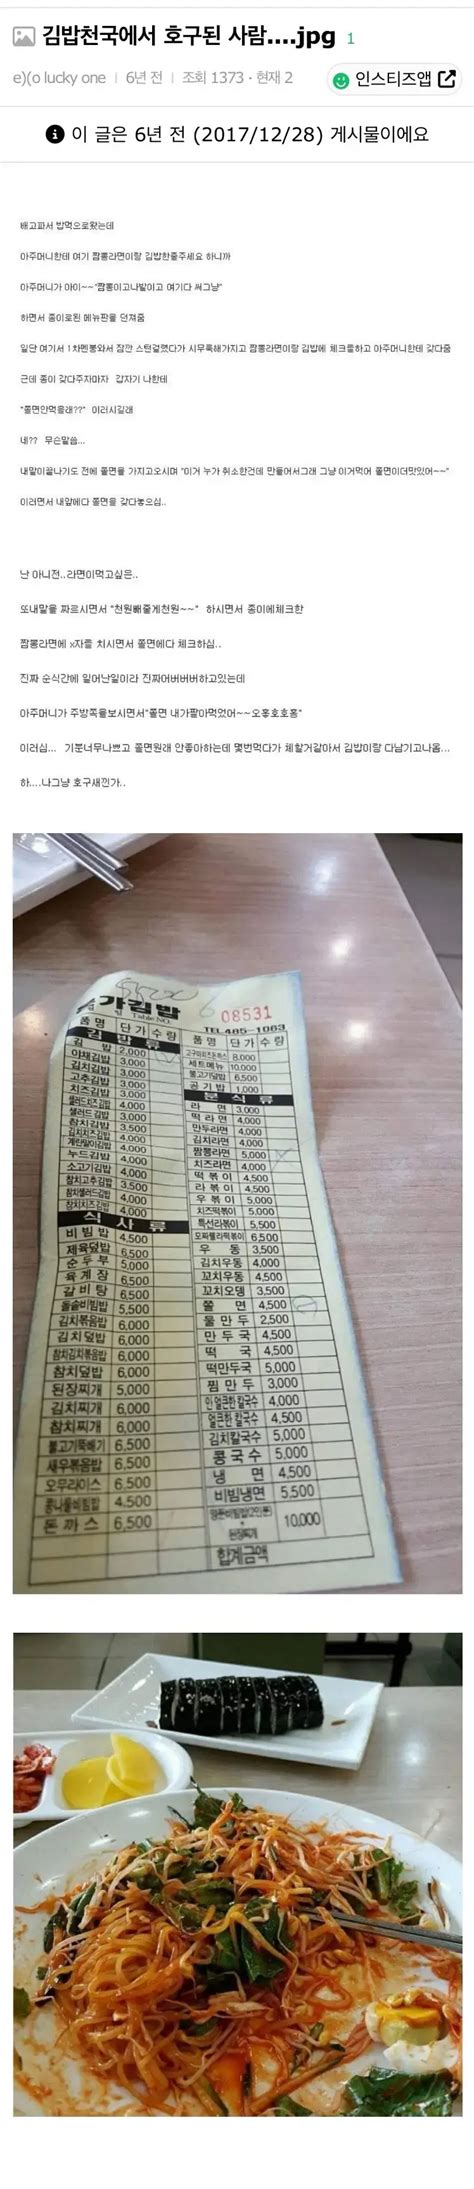 김밥천국에서 호구된 사람....jpg 1
e)(o lucky one | 6년 전 | 조회 1373 · 현재 2
인스티즈앱
이 글은 6년 전 (2017/12/28) 게시물이에요
배고파서 밥먹으로왔는데
아주머니한테 여기 짬뽕라면이랑 김밥한줄주세요 하니까
아주머니가 아이~~"짬뽕이고나발이고 여기다 써그냥"
하면서 종이로된 메뉴판을 던져줌
일단 여기서 1차멘붕와서 잠깐 스턴걸렸다가 시무룩해가지고 짬뽕라면이랑 김밥에 체크를하고 아주머니한테 갖다줌
근데 종이 갖다주자마자 갑자기 나한테
"쫄면안먹을래??" 이러시길래
네?? 무슨말씀...
내말이끝나기도 전에 쫄면를 가지고오시며 "이거 누가 취소한건데 만들어서그래 그냥 이거먹어 쫄면이더맛있어~~"
이러면서 내앞에다 쫄면을 갖다놓으심..
난 아니전..라면이먹고싶은..
또내말을 짜르시면서 "천원빼줄게천원~~" 하시면서 종이에체크한
짬뽕라면에 x자를 치시면서 쫄면에다 체크하심..
진짜 순식간에 일어난일이라 진짜어버버버하고있는데
아주머니가 주방쪽을보시면서"쫄면 내가팔아먹었어~~오홍호호홍"
이러심... 기분너무나쁘고 쫄면원래 안좋아하는데 몇번먹다가 체할거같아서 김밥이랑 다남기고나옴...
하....나그냥 호구새낀가..
가김밥
Table NO.
08531
TEL 485-1063
품 명 단 가 수 량
김 밥 류
김 밥 2,000
야채김밥 3,000
김치김밥 3,000
고추김밥 3,000
치즈김밥 3,000
샐러드치즈김밥 4,000
샐러드김밥 3,000
참치김밥 3,500
김치치즈김밥 4,000
계란말이김밥 4,000
누드김밥 4,000
소고기김밥 4,000
참치고추김밥 3,500
참치샐러드김밥 4,000
참치치즈김밥 4,000
식 사 류
비빔밥 4,500
제육덮밥 6,500
순두부 5,000
육계장 6,500
갈비탕 6,500
돌솥비빔밥 5,500
김치볶음밥 6,000
김치덮밥 6,000
참치김치볶음밥 6,000
참치덮밥 6,000
된장찌개 5,000
김치찌개 6,000
참치찌개 6,000
불고기뚝배기 6,500
새우볶음밥 6,500
오무라이스 6,500
콩나물비빔밥 4,500
돈까스 6,500
품 명 단 가 수 량
고구마치즈돈까스 8,000
세트메뉴 10,000
불고기덮밥 6,500
공기밥 1,000
분 식 류
라 면 3,000
떡라면 4,000
만두라면 4,000
김치라면 4,000
짬뽕라면 5,000
치즈라면 4,000
떡볶이 4,500
라볶이 4,500
우볶이 5,000
치즈떡볶이 5,000
특선라볶이 5,500
모짜렐라떡볶이 6,500
우 동 3,500
김치우동 4,000
꼬치우동 4,500
꼬치오뎅 3,500
쫄 면 4,500
물만두 2,500
만두국 4,500
떡 국 4,500
떡만두국 5,000
찜만두 3,000
안얼큰한칼국수 4,000
얼큰한칼국수 4,500
김치칼국수 5,000
콩국수 5,000
냉 면 4,500
비빔냉면 5,500
10,000
합계금액